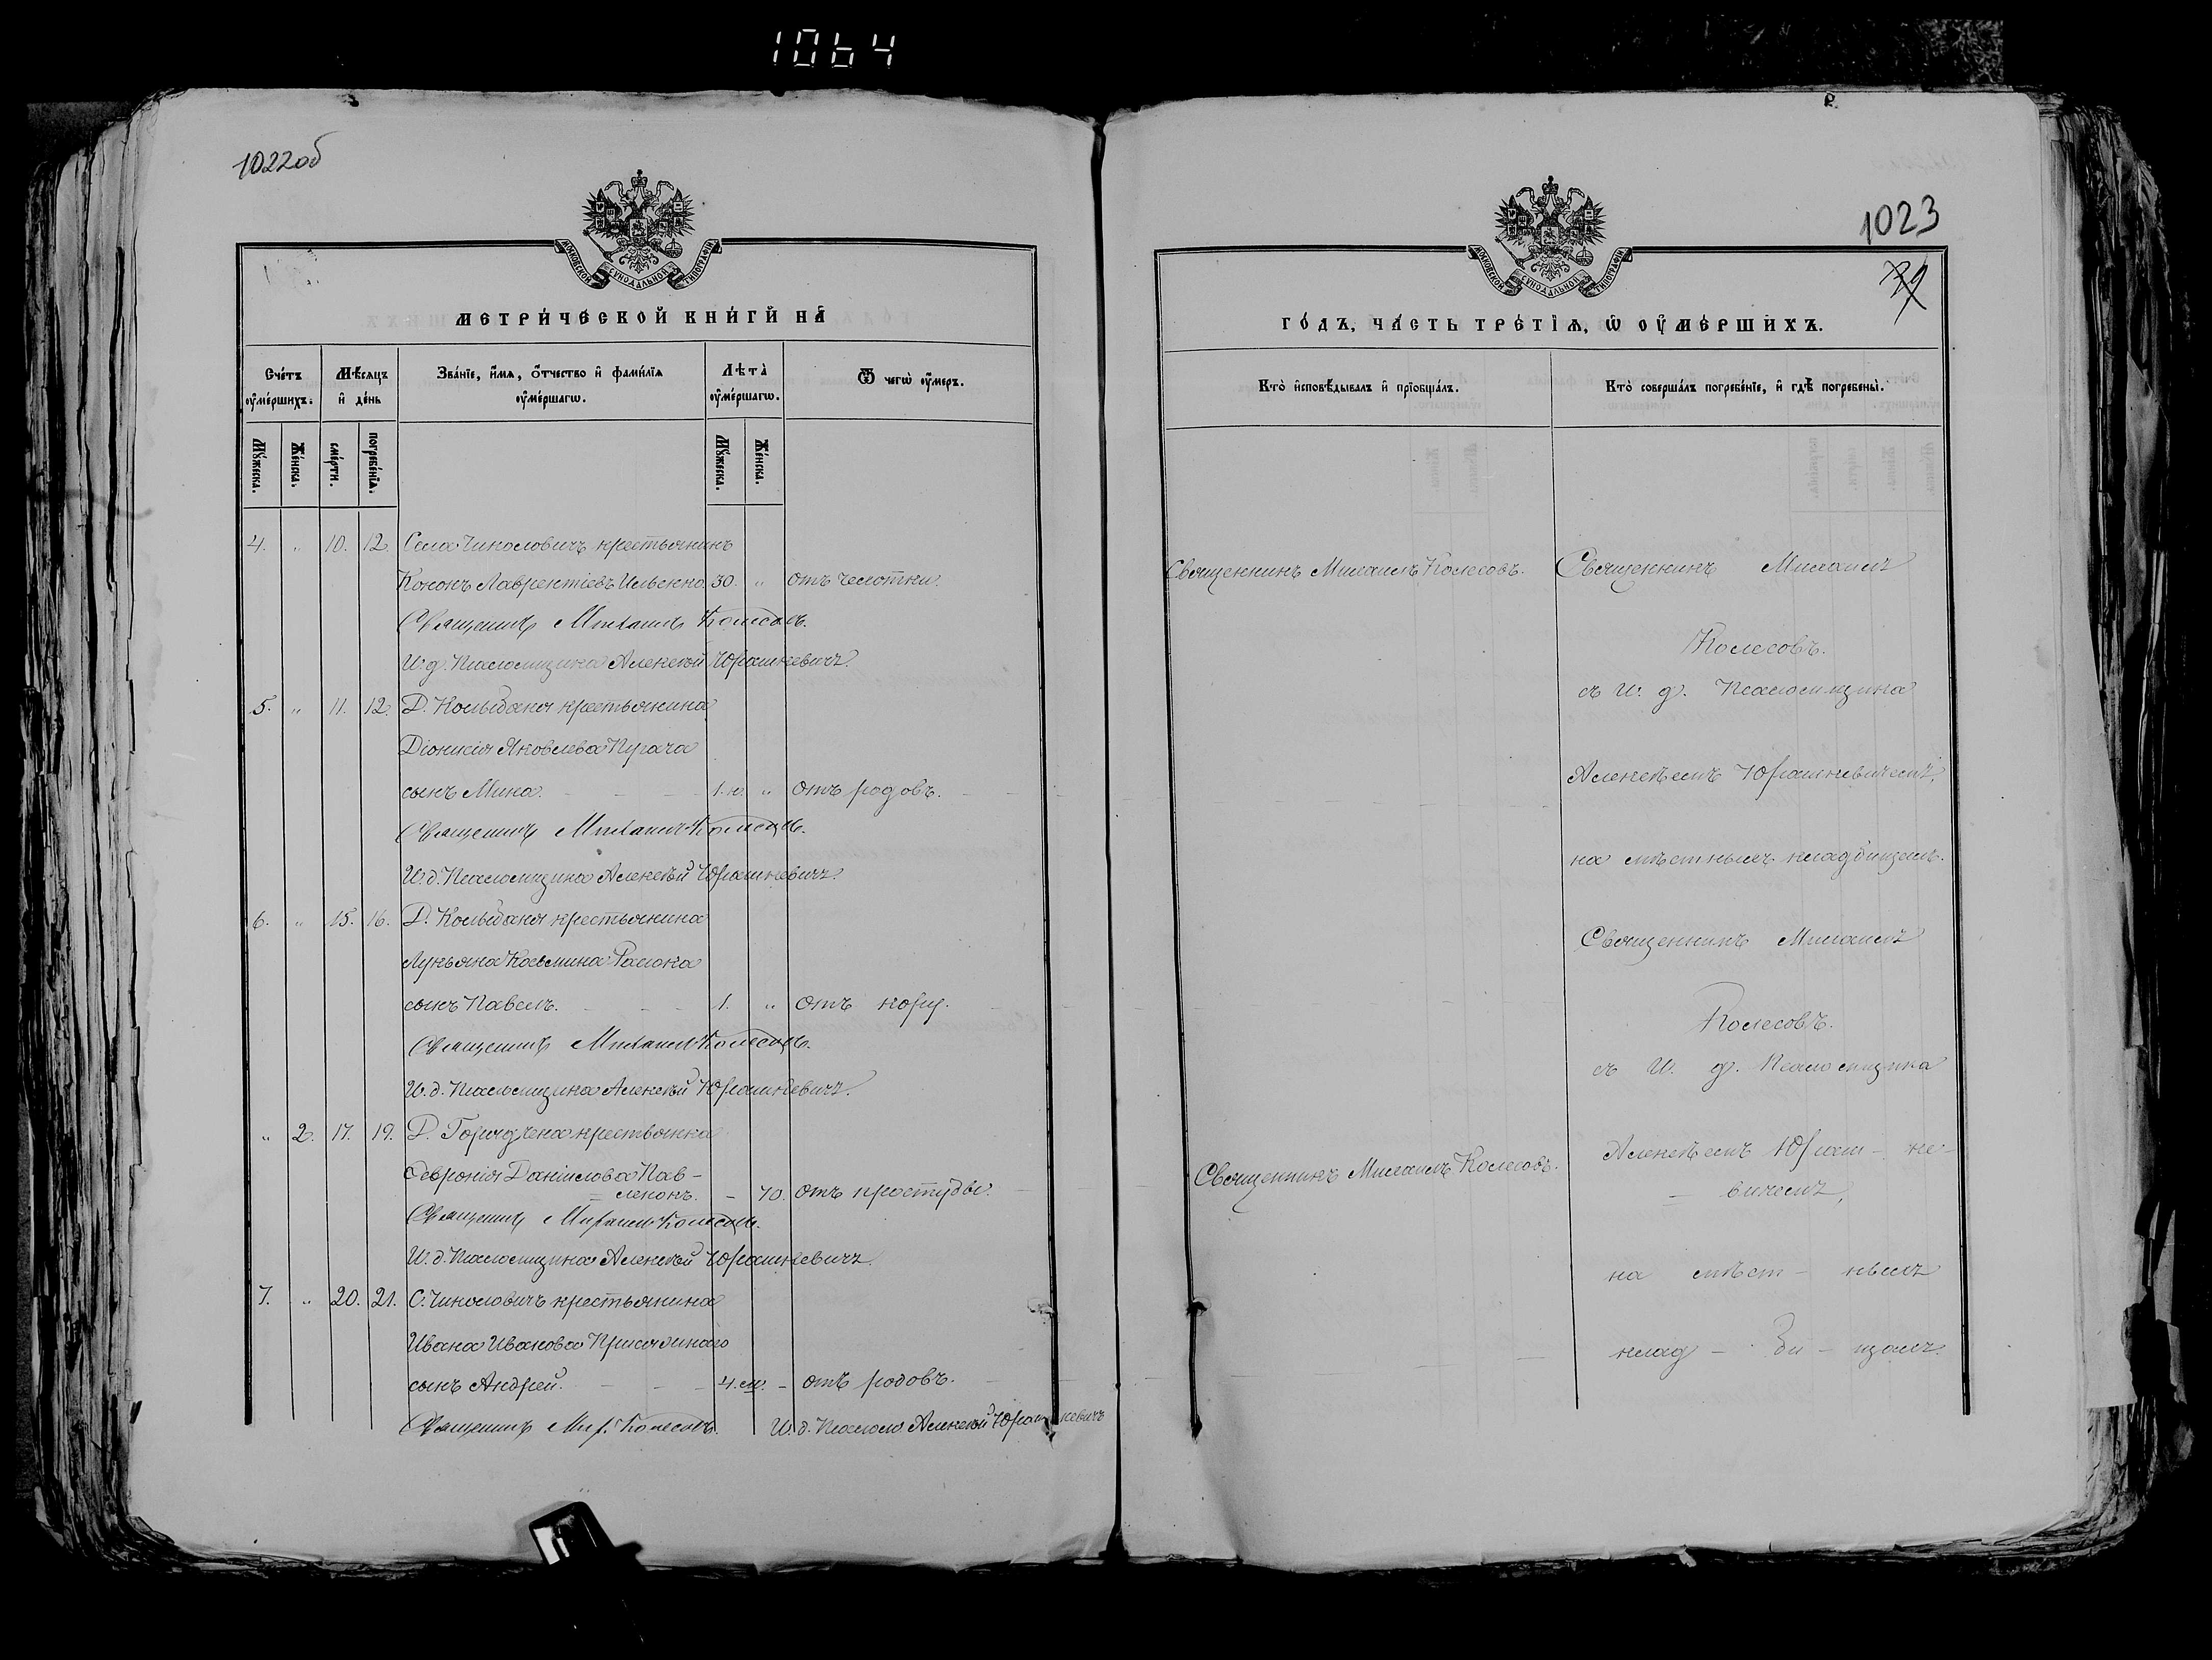 1064
1022об
МОСКОВСКОЙ СѴНОДАЛЬНОЙ ТИПОГРАФІИ
МЕТРИ́ЧЕСКОЙ КНИ́ГИ НА̀
Сче́тъ оу҆ме́ршихъ.
Мѣ́сяцъ и҆ де́нь
Зва́нїе, и҆́мѧ, ѻ҆́тчество и҆ фами́лїѧ оу҆ме́ршагѡ.
Лѣ́та̀ оу҆ме́ршагѡ.
Ѿ чегѡ̀ оу҆́меръ.
Мꙋ́жеска.
Же́нска.
сме́рти.
погребе́нїѧ.
Мꙋ́жеска.
Же́нска.
4. „ 10. 12. Села Чиколовичъ крестьянинъ
Кононъ Лаврентіевъ Ильенко 30. „ отъ чесотки.
Священникъ Михаилъ Колесовъ.
И. д. Псаломщика Алексѣй Юрашкевичъ.
5. „ 11. 12. Д. Колыбани крестьянина
Діонисія Яковлева Пугача
сынъ Мина. - - - 1. н. „ отъ родовъ.
Священникъ Михаилъ Колесовъ.
И. д. Псаломщика Алексѣй Юрашкевичъ.
6. „ 15. 16. Д. Колыбани крестьянина
Лукьяна Косьмина
сынъ Павелъ. - - - 1. „ отъ кору.
Священникъ Михаилъ Колесовъ.
И. д. Псаломщика Алексѣй Юрашкевичъ.
„ 2. 17. 19. Д. крестьянка
Февронія Даніилова Пав-
ленокъ. - 70. отъ простуды.
Священникъ Михаилъ Колесовъ.
И. д. Псаломщика Алексѣй Юрашкевичъ.
7. „ 20. 21. С. Чиколовичъ крестьянина
Ивана Иванова
сынъ Андрей. - - - 4. м. - отъ родовъ.
Священникъ Мих. Колесовъ. И. д. Псалом. Алексѣй Юрашкевичъ
1023
39
МОСКОВСКОЙ СѴНОДАЛЬНОЙ ТИПОГРАФІИ
ГО́ДЪ, ЧА́СТЬ ТРЕ́ТЇѦ, Ѡ҆ ОУ҆МЕ́РШИХЪ.
Кто̀ и҆сповѣ́дывалъ и҆ прїѡбща́лъ.
Кто̀ соверша́лъ погребе́нїе, и҆ гдѣ̀ погребены̀.
Священникъ Михаилъ Колесовъ.
Священникъ Михаилъ
Колесовъ.
съ И. д. Псаломщика
Алексѣемъ Юрашкевичемъ,
на мѣстномъ кладбищѣ.
Священникъ Михаилъ
Колесовъ.
съ И. д. Псаломщика
Священникъ Михаилъ Колесовъ.
Алексѣемъ Юраш - ке-
- вичемъ,
на мѣст - номъ
клад - би - щѣ.